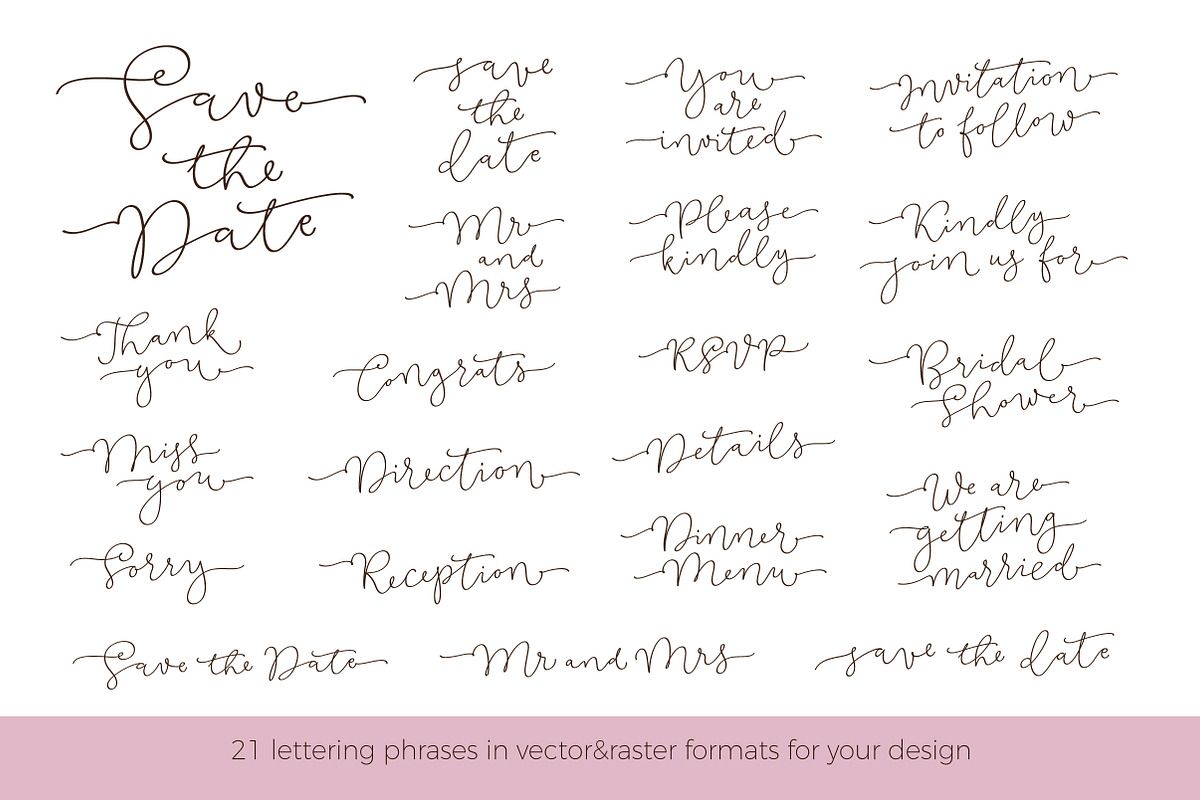 Save
the
Date
save
the
date
You
are
invited
Invitation
to follow
Mr
and
Mrs
Please
kindly
Kindly
join us for
Thank
you
Congrats
RSVP
Bridal
Shower
Miss
you
Direction
Details
We are
getting
married
Sorry
Reception
Dinner
Menu
Save the Date
Mr and Mrs
save the date
21 lettering phrases in vector&raster formats for your design